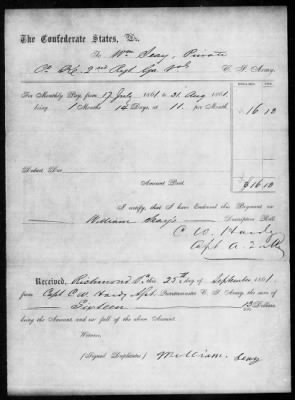 The Confederate States, Dr.
To Wm Seay, Private
Co. 2nd Regt Ga Vols C. S. Army.
For Monthly Pay, from 17 July 1861 to 31 Aug 1861
being 1 Months 14 Days, at 11 per Month 16 13
Deduct Due
Amount Paid $16 13
I certify, that I have Endorsed this Payment on
William Seay's Descriptive Roll.
C. W. Hardy
Capt A. Q. M.
Received, Richmond Va this 25th day of September 1861,
from Capt C. W. Hardy Asst. Quartermaster C. S. Army, the sum of
Sixteen 13/100 Dollars
being the Amount, and in full of the above Account.
Witness,
(Signed Duplicates) William Seay